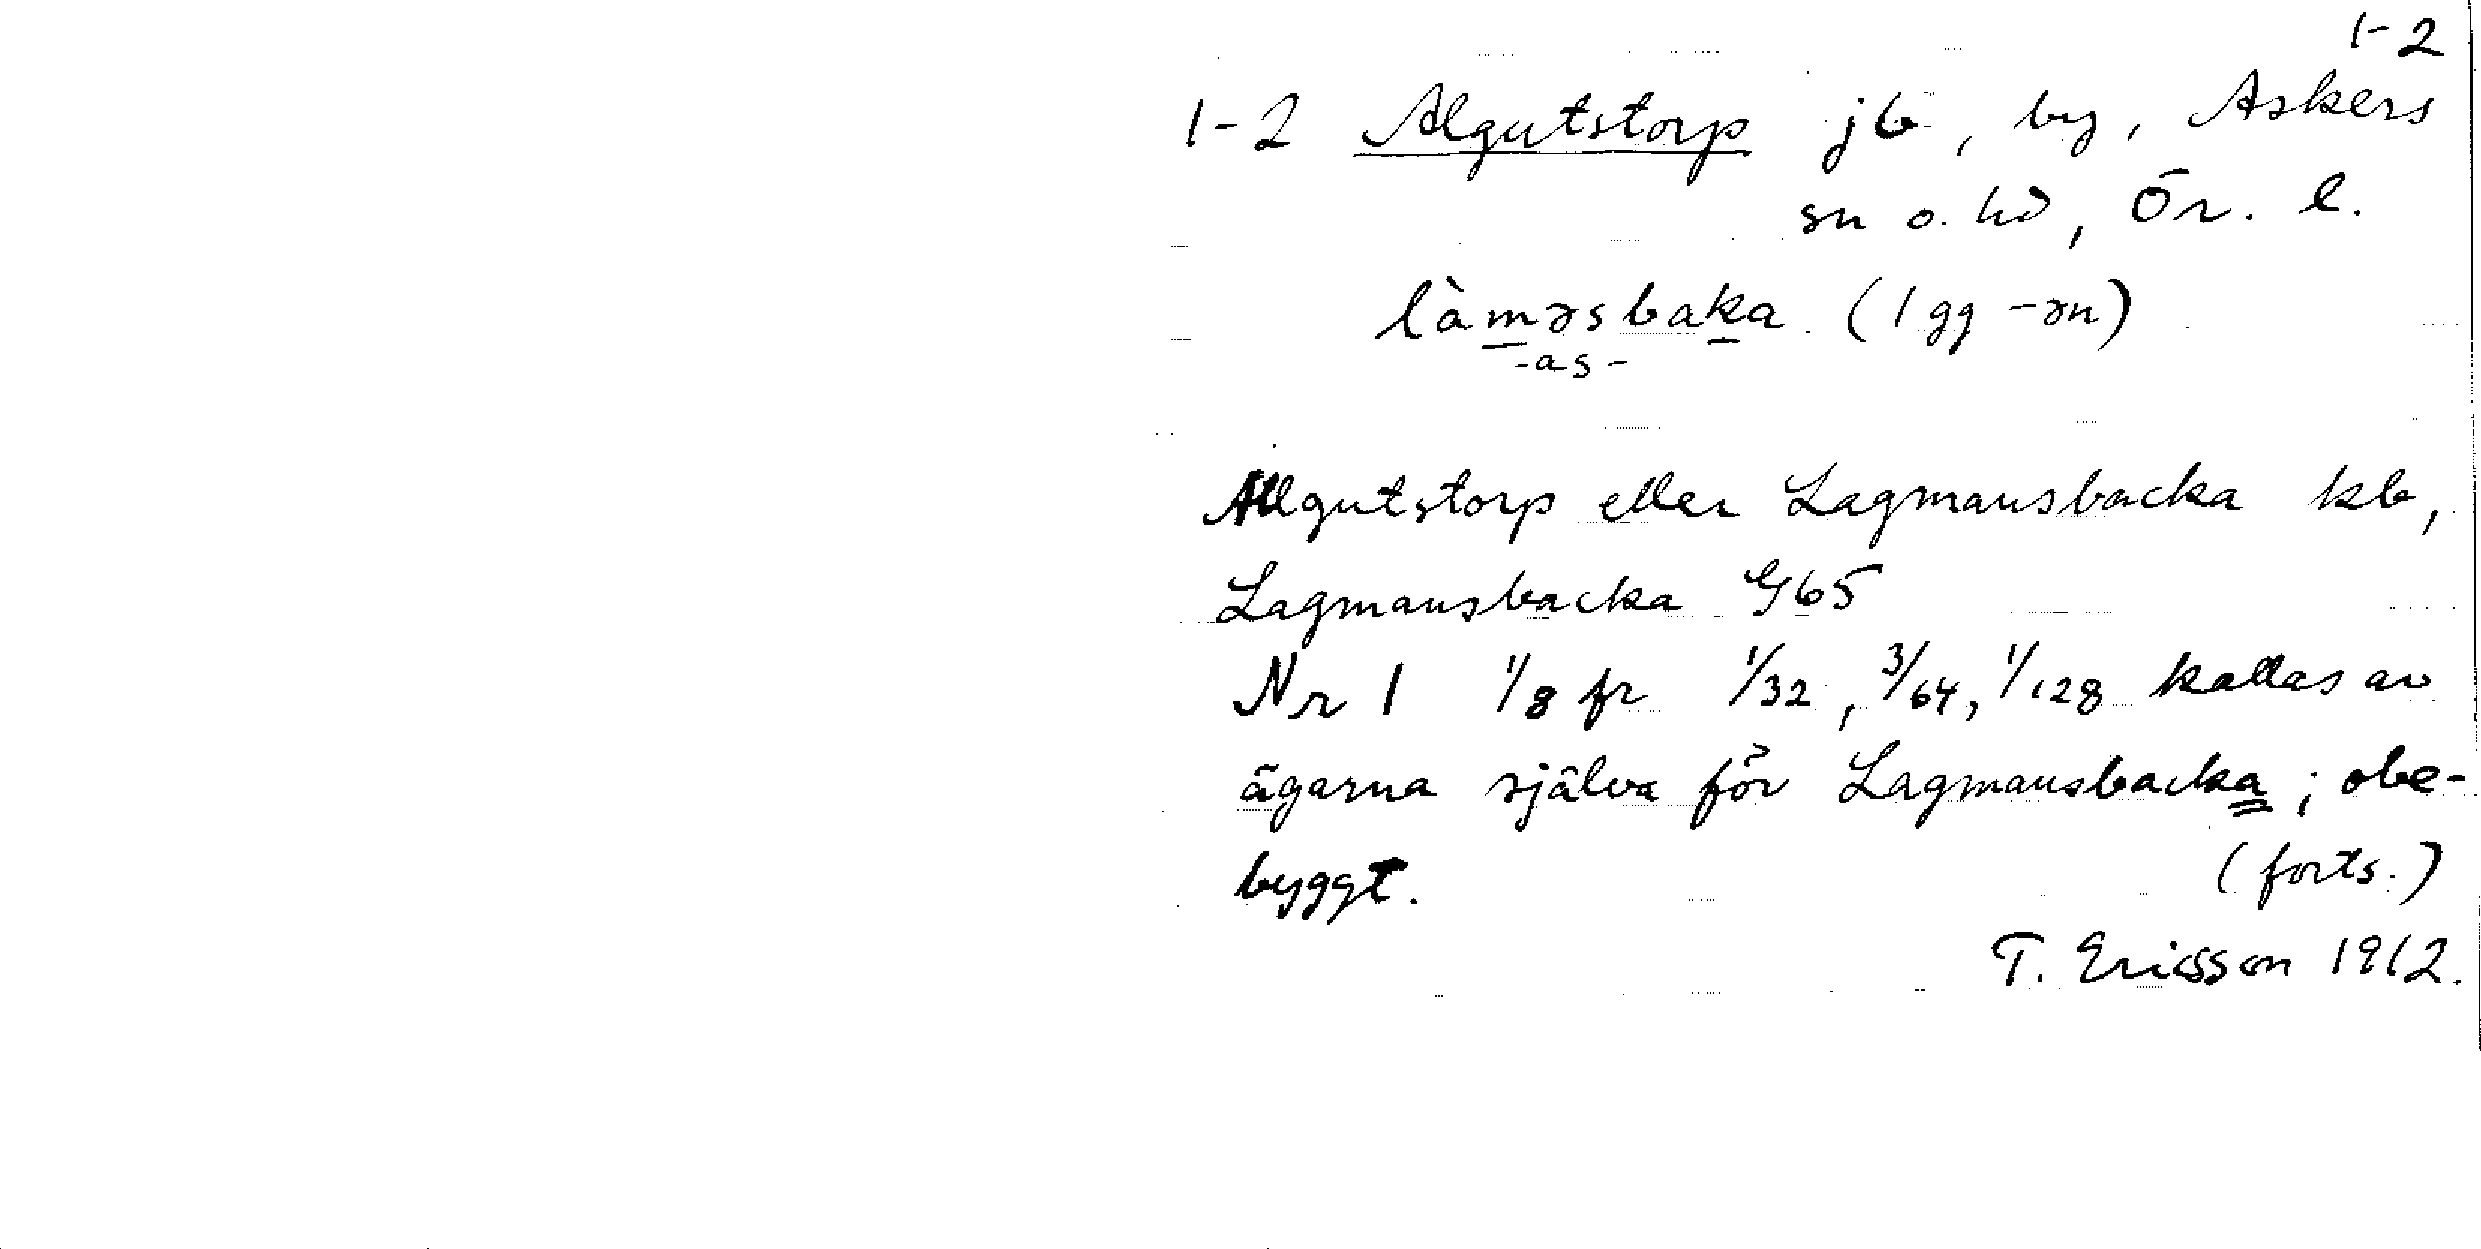 1-2
1-2 Algutstorp jb, by, Askers
sn o. hd, Ör. l.
làməsbaka (1 gg -ən)
-as-
Allgutstorp eller Lagmansbacka kb,
Lagmansbacka G65
Nr 1 1/8 fr 1/32, 3/64, 1/128 kallas av
ägarna själva för Lagmansbacka; obe-
byggt. (forts.)
T. Ericsson 1912.